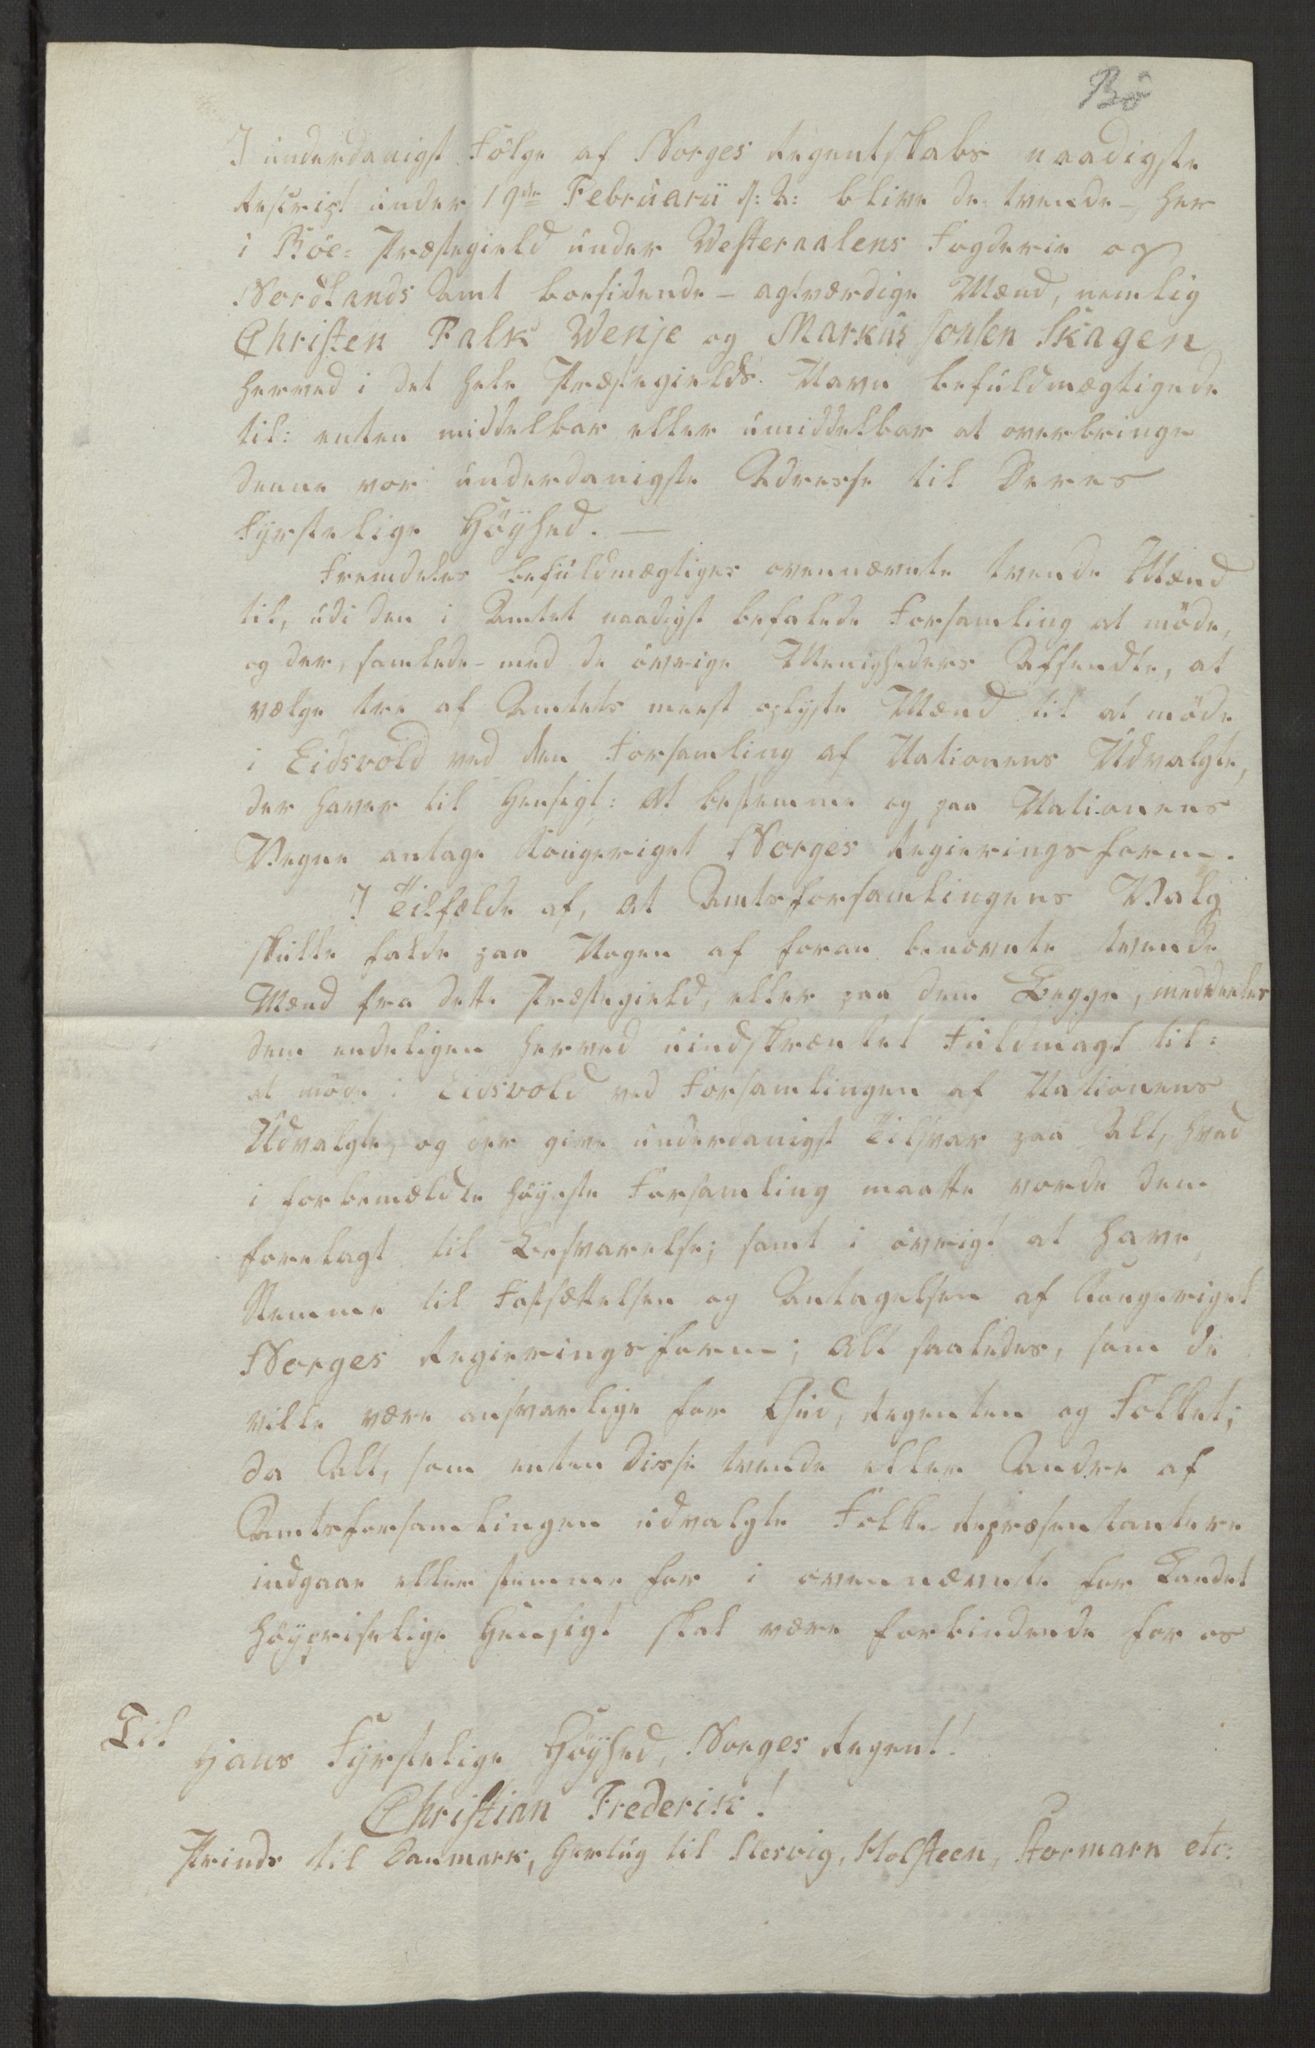 Bö
I underdanigst Fölge af Norges Regentskabs naadigste
Rescript under 19de Februarii d: A: blive de tvende - her
i Böe-Præstegield under Westeraalens Fogderie og
Nordlands Amt boesidende - agtværdige Mænd, nemlig
Christen Falk Wenje og Markus Skagen
herved i det hele Præstegields Navn befuldmægtigede
til: enten middelbar eller umiddelbar at overbringe
denne vor underdanigste Adresse til Deres
Fyrstelige Höyhed. —
Fremdeles befuldmægtiges ovennævnte tvende Mænd
til, udi den i Amtet naadigst befalede Forsamling at möde,
og der, samlede - med de övrige Menigheders Affsendte, at
vælge tre af Amtets meest oplyste Mænd til at möde
i Eidsvold ved den Forsamling af Nationens Udvalgte,
der haver til Hensigt: at bestemme og paa Nationens
Vegne antage Kongeriget Norges Regieringsform.
I Tilfælde af, at Amtsforsamlingens Valg
skulle falde paa Nogen af foran benævnte tvende
Mænd fra dette Præstegield, eller paa dem Begge, meddeeles
dem endeligen herved uindskrænket Fuldmagt til:
at möde i Eidsvold ved Forsamlingen af Nationens
Udvalgte, og der give underdanigst Tilsvar paa Alt, hvad
i forbemældte höyeste Forsamling maatte vorde dem
forelagt til Besvarelse; samt i övrigt at have
Stemme til Fastsættelsen og Antagelsen af Kongeriget
Norges Regieringsform; Alt saaledes, som de
ville være ansvarlige for Gud, Regenten og Folket;
da Alt, som enten disse tvende eller Andre af
Amtsforsamlingen udvalgte Folke-Repræsentantere
indgaae eller stemme for i ovennævnte for Landet
höypriselige Hensigt skal være forbindende for os
Til
Hans Fyrstelige Höyhed, Norges Regent!
Christian Frederik!
Prinds til Danmark, Hertug til Slesvig, Holsteen, Stormarn etc: